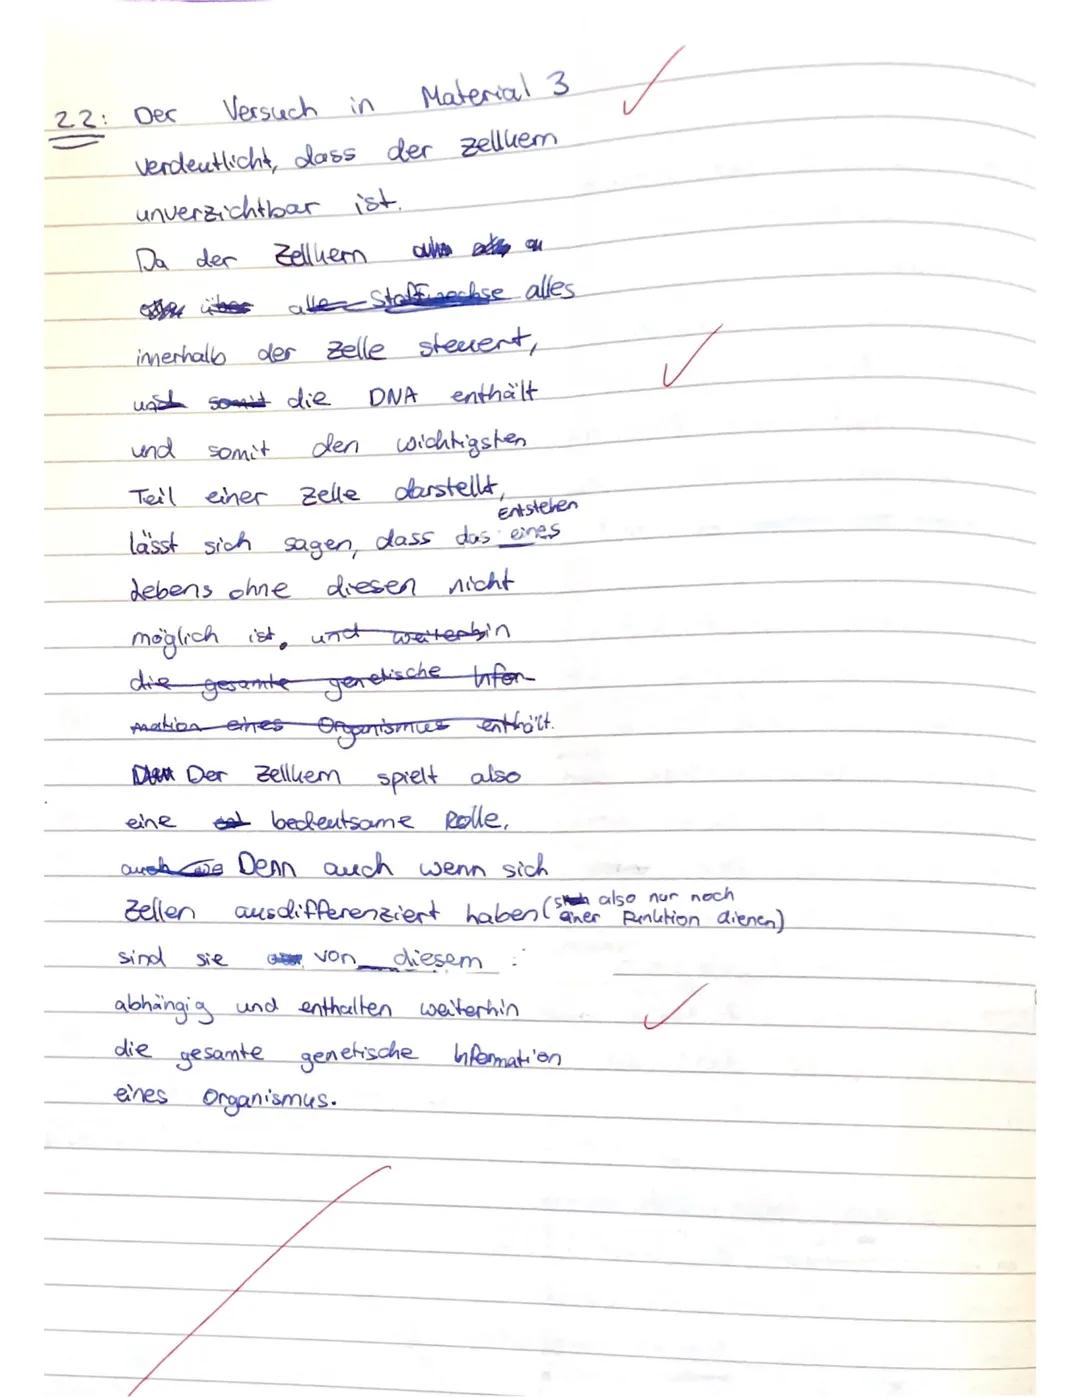 22: Der Versuch in Material 3
verdeutlicht, dass der Zellkern
unverzichtbar ist.
Da der Zellkern
alle Stoffwechse alles
innerhalb der Zelle steuert,
und somit die DNA enthält
und somit den wichtigsten
Teil einer Zelle darstellt,
Entstehen
lässt sich sagen, dass das eines
Lebens ohne diesen nicht
möglich ist. und weiterhin
die gesamte genetische Infor-
mation eines Organismus enthält.
Der Zellkern spielt also
eine bedeutsame Rolle,
auch Denn auch wenn sich
Zellen ausdifferenziert haben (also nur noch
einer Funktion dienen)
sind sie von diesem
abhängig und enthalten weiterhin
die gesamte genetische Information
eines Organismus.